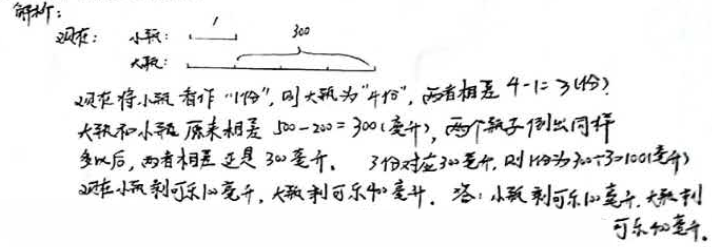 解析:
现在: 小瓶: 1 300
大瓶:
现在将小瓶看作“1份”,则大瓶为“4份”,两者相差 4-1=3(份)
大瓶和小瓶原来相差 500-200=300(毫升),两个瓶子倒出同样
多以后,两者相差还是 300毫升. 3份对应300毫升,则1份为300÷3=100(毫升)
现在小瓶剩可乐100毫升,大瓶剩可乐400毫升. 答:小瓶剩可乐100毫升,大瓶剩
可乐400毫升.